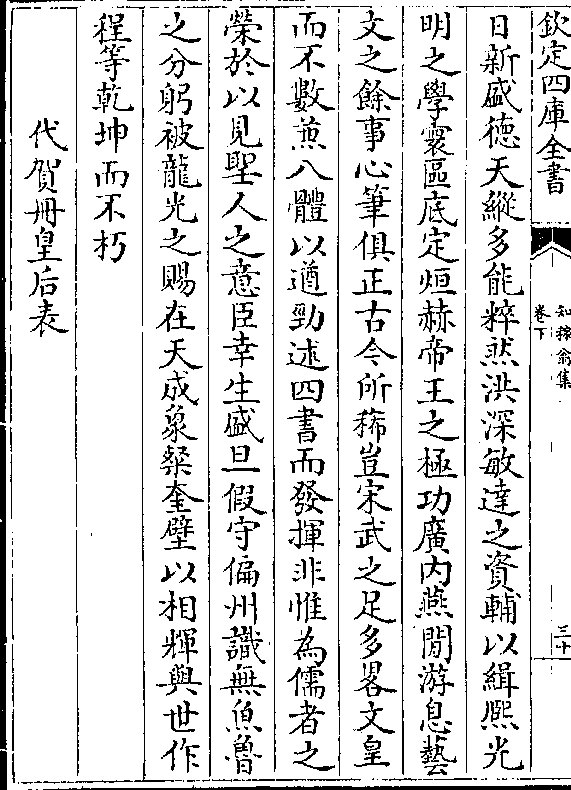 欽定四庫全書
知稼翁集
卷下
三十
日新盛德天縱多能粹然洪深敏達之資輔以緝熈光
明之學寰區底定烜赫帝王之極功廣内燕閒游息藝
文之餘事心筆俱正古今所稀豈宋武之足多畧文皇
而不數兼八體以遒勁述四書而發揮非惟為儒者之
榮於以見聖人之意臣幸生盛旦假守偏州識無魚魯
之分躬被龍光之賜在天成象粲奎璧以相輝與世作
程等乾坤而不朽
代賀冊皇后表